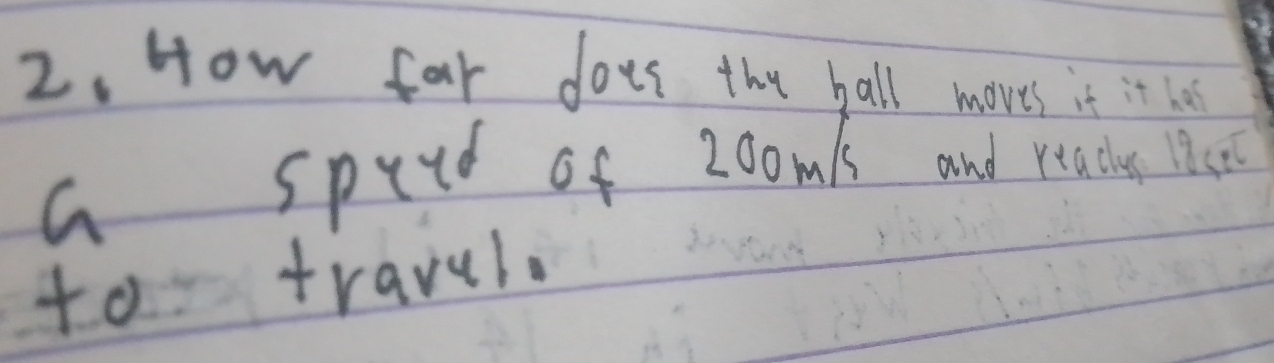 2. How far does the ball moves if it has
a speed of 200m/s and reaches 18sec
to travel.